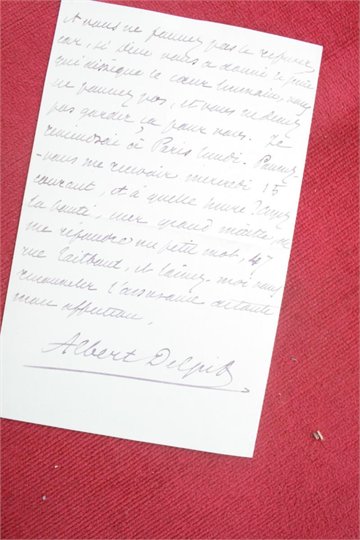 et vous ne pouvez pas le refuser,
car, si Dieu vous a donné le génie
qui dissèque le cœur humain, vous
ne pouvez pas, et vous ne devez
pas garder ça pour vous. Je
reviendrai à Paris lundi. Pouvez
-vous me recevoir mercredi 15
courant, et à quelle heure? Ayez
la bonté, mon grand maître, de
me répondre un petit mot, 47
rue Laitbout, et laissez-moi vous
renouveler l'assurance de toute
mon affection.
Albert Delpit